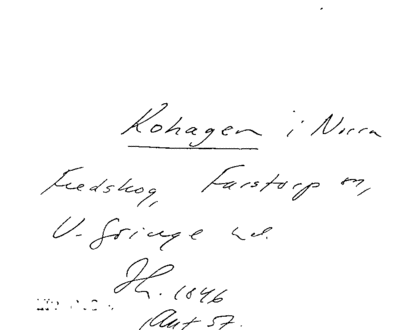 Kohagen i Norra
Fredskog, Farstorp sn,
V. Göinge hd.
Jh. 1846
Ant St.